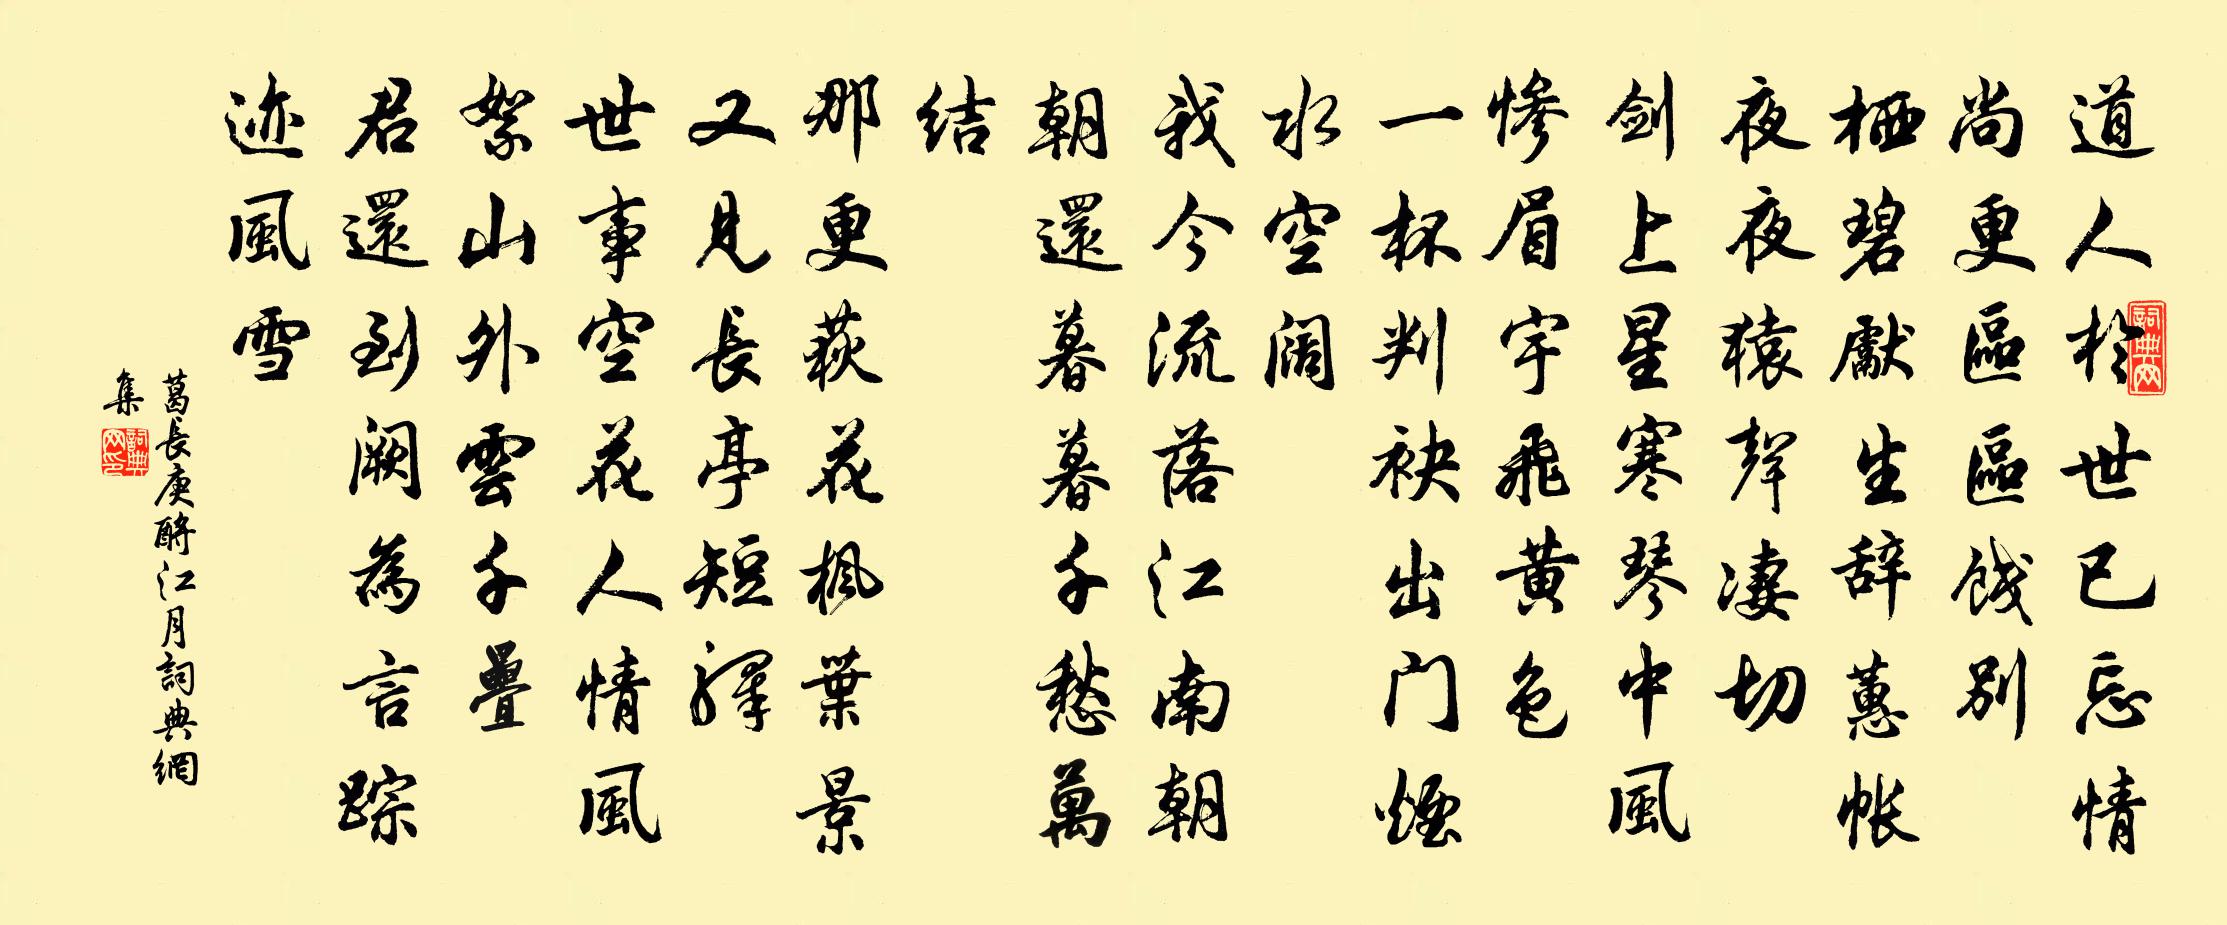 道人於世已忘情
尚更區區餞別
栖碧獻生辞蕙帐
夜夜猿聲凄切
剑上星寒琴中風
慘眉宇飛黄色
一杯判袂出门煙
水空阔
我今流落江南朝
朝還暮暮千愁萬
结
那更荻花楓葉景
又見長亭短驛
世事空花人情風
絮山外雲千疊
君還到阙為言踪
迹風雪
葛長庚酹江月詞典網
集
詞典网
詞典网印